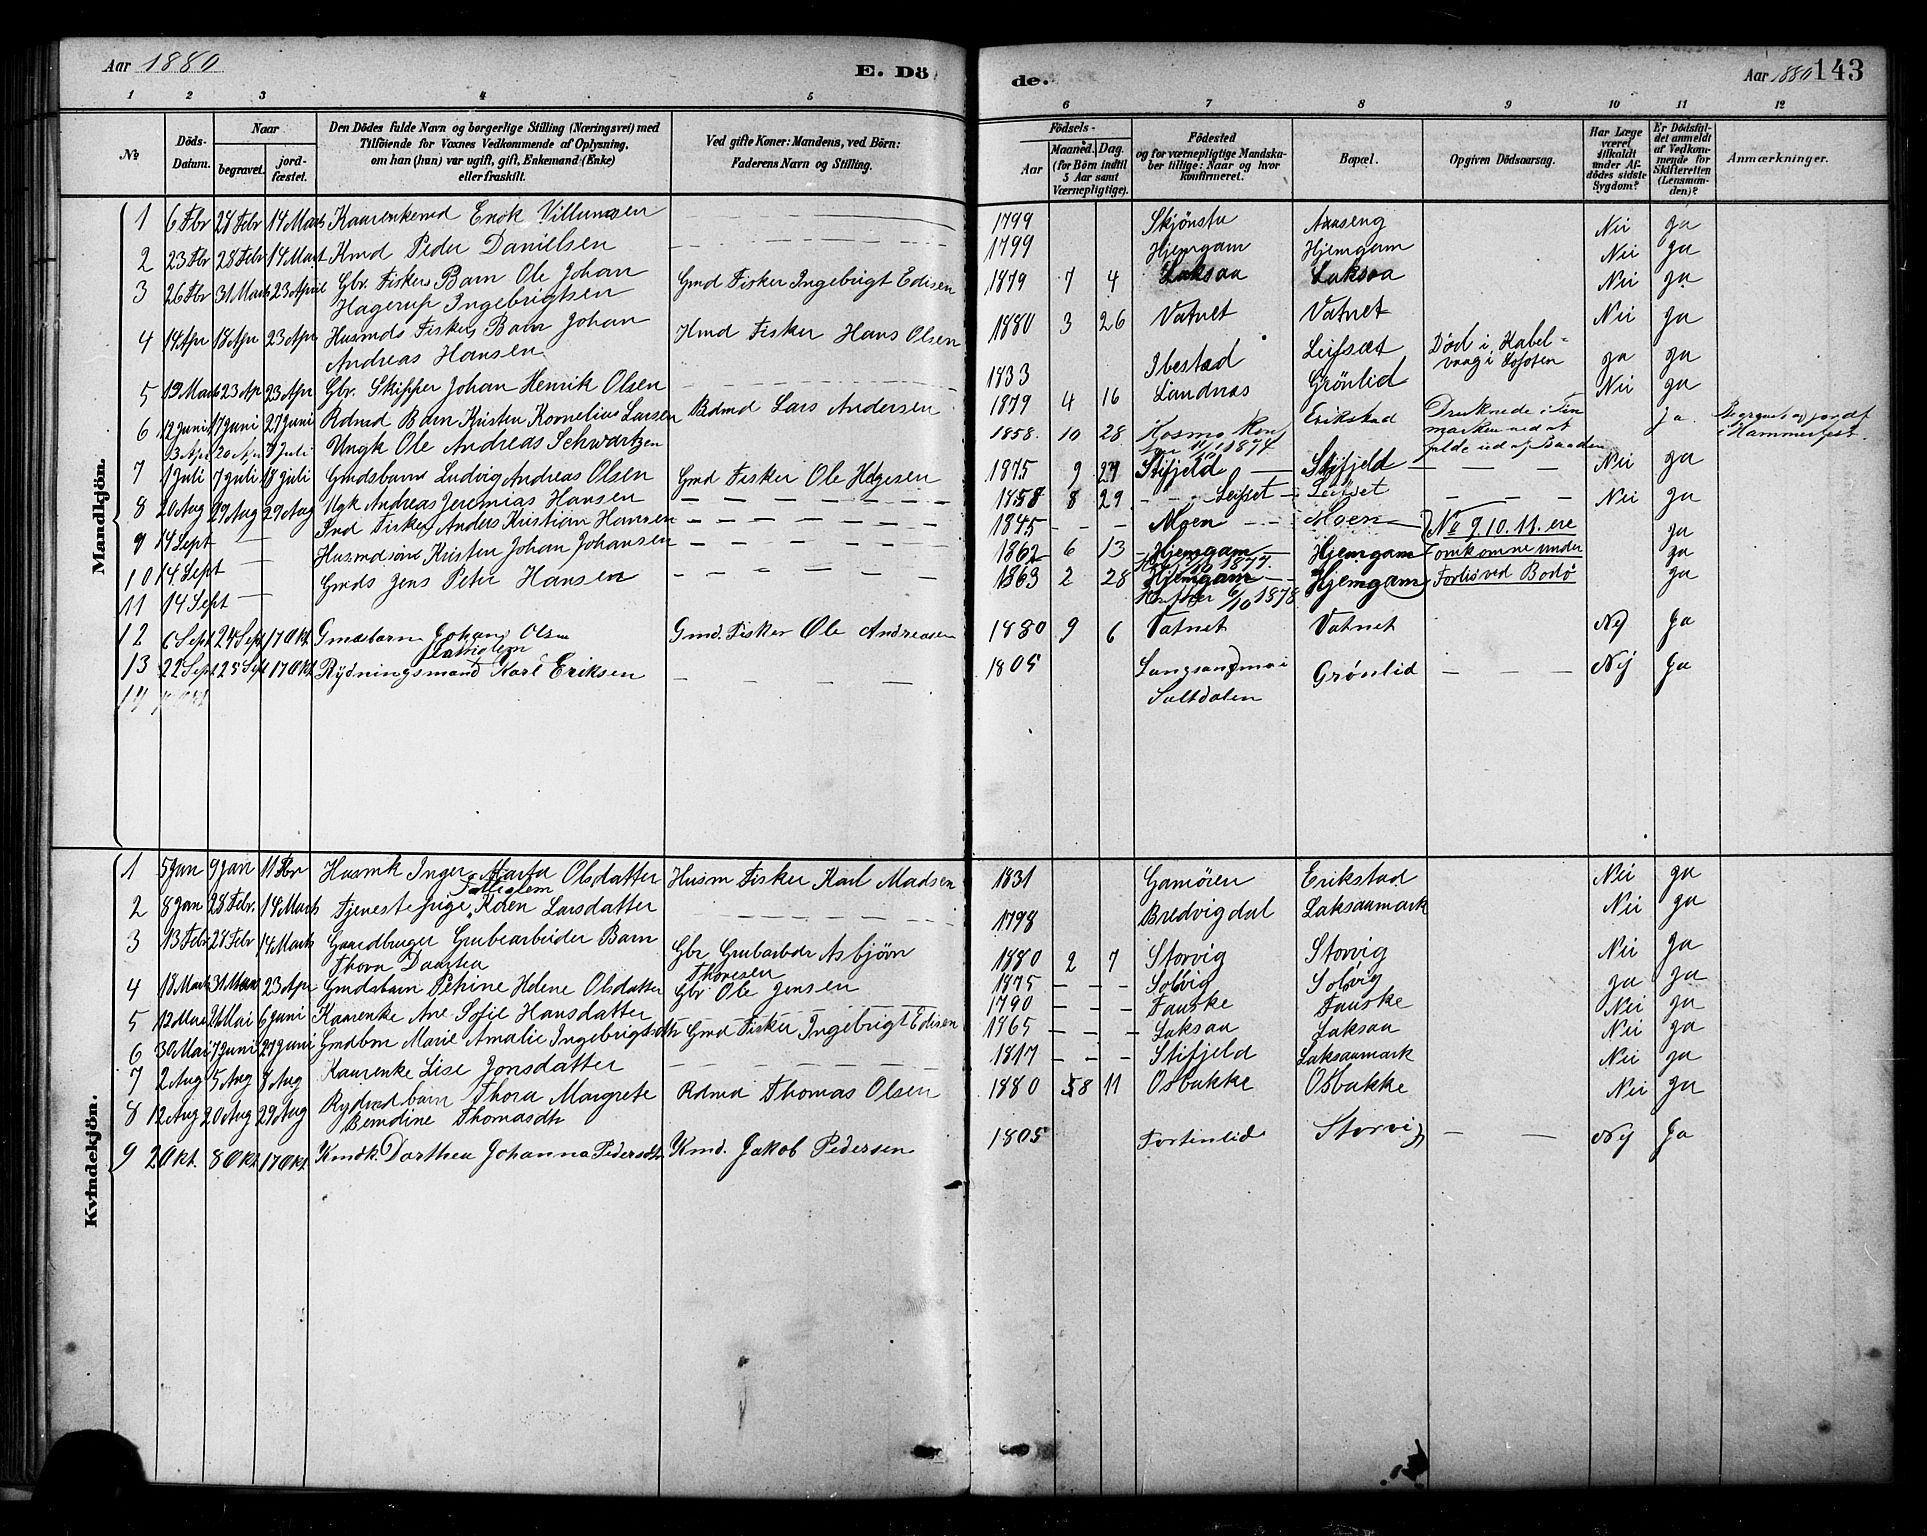 Aar 1880
E. Dö
de.
Aar 1880 143
1 2 3 4 5 6 7 8 9 10 11 12
No
Döds-Datum.
Naar
begravet.
jord-fæstet.
Den Dödes fulde Navn og borgerlige Stilling (Næringsvei) med
Tilföiende for Voxnes Vedkommende af Oplysning,
om han (hun) var ugift, gift, Enkemand (Enke)
eller fraskilt.
Ved gifte Koner: Mandens, ved Börn:
Faderens Navn og Stilling.
Födsels-
Aar
Maaned. Dag.
(for Börn indtil
5 Aar samt
Værnepligtige).
Födested
og for værnepligtige Mandska-
ber tillige: Naar og hvor
konfirmeret.
Bopæl.
Opgiven Dödsaarsag.
Har Læge
været
tilkaldt
under Af-
dödes sidste
Sygdom?
Er Dödsfal-
det anmeldt
af Vedkom-
mende for
Skifteretten
(Lensman-
den)?
Anmærkninger.
Mandkjön.
1 6 Fbr 28 Febr 14 Marts Kaarenkemd Enok Villumsen 1799 Skjönstu Aaaseng Nei ja
2 23 Fbr 28 Febr 14 Mart Kmd Peder Danielsen 1799 Hjemgam Hjemgam Nei ja
3 26 Fbr 31 Marts 23 April Gbr. Fiskers Barn Ole Johan Gmd Fisker Ingebrigt Edisen 1879 7 4 Laksaa Laksaa Nei ja
Hagerup Ingebrigtsen
4 14 Apr 18 Apr 23 Apr Husmds Fiskers Barn Johan Hmd Fisker Hans Olsen 1880 3 26 Vatnet Vatnet Nei ja
Andreas Hansen
5 19 Marts 23 Apr 23 Apr Gbr. Skipper Johan Henrik Olsen 1833 Ibestad Leifsæt Död i Kabel-
vaag i Lofoten ja ja
6 12 Juni 17 Juni 27 Juni Rdmd Barn Kristen Kornelius Larsen Rdmd Lars Andersen 1879 4 16 Sandnas Grönlid Nei ja
Ungk Ole Andreas Schwartzen 1858. 10 28 Kosmo Erikstad ja
7 1 Juli 7 Juli 18 Juli Gmdsbarn Ludvig Andreas Olsen Gmd Fisker Ole Helgesen 1875 9 27 Stifjeld Stifjeld Nei ja
8 20 Aug 29 Aug 29 Aug Ugk Andreas Jeremias Hansen 1858 8 29 Leifset Leifset Nei ja
9 14 Sept Ind Fisker Anders Kristian Hansen 1845 Moen Moen No 9. 10. 11. ere
10 14 Sept Husmdsön Kristen Johan Johansen 1862 6 13 Hjemgam Hjemgam omkomne under ja
11 14 Sept Gmds Jens Peter Hansen 1863 2 28 Hjemgam Hjemgam Forlis ved Bodö ja
12 6 Sept 24 Sept 17 Okt Gmdsbarn Johan Olsen Gmd. Fisker Ole Andreasen 1880 9 6 Vatnet Vatnet Nej Ja
13 22 Sept 25 Sept 17 Okt Rydningsmand Karl Eriksen 1805 Langsandmoi Grönlid Nej Ja
Saltdalen
14
Kvindekjön.
1 5 Jan 9 Jan 11 Fbr Husmk Inger Marta Olsdatter Husm Fisker Karl Madsen 1831 Gamöien Erikstad Nei ja
2 8 Jan 28 Febr. 14 Marts Tjenestepige Karen Larsdatter 1798 Bredvigdal Laksaamark Nei ja
3 13 Febr 28 Febr 14 Marts Gaardbruger Grubearbeider Barn Gbr Grubarbdr Asbjörn 1880 2 7 Storvig Storvig Nei Ja
Thora Daartea Thoresen
4 18 Marts 31 Mars 23 Apr Gmdsbarn Petrine Helene Olsdatter Gbr Ole Jensen 1875 Solvig Solvig ja ja
5 12 Mai 21 Mai 6 Juni Kaarenke Ane Sofie Hansdatter 1790 Fauske Fauske Nei ja
6 30 Mai 7 Juni 27 Juni Gmdbrn Marie Amalie Ingebrigtsdtr Gmd Fisker Ingebrigt Edisen 1865 Laksaa Laksaa Nei ja
7 2 Aug 5 Aug 8 Aug Kaarenke Lise Jonsdatter 1817 Stifjeld Laksaamark Nei ja
8 12 Aug 20 Aug 29 Aug Rydmdbarn Thora Margrete Rdmd Thomas Olsen 1880 8 11 Osbakke Osbakke Nei ja
Berndine Thomasdtr
9 2 Okt. 8 Okt 17 Okt Kmdk. Dorthea Johanna Pedersdtr Kmd. Jakob Pedersen 1805 Fortenlid Storvig Nej Ja